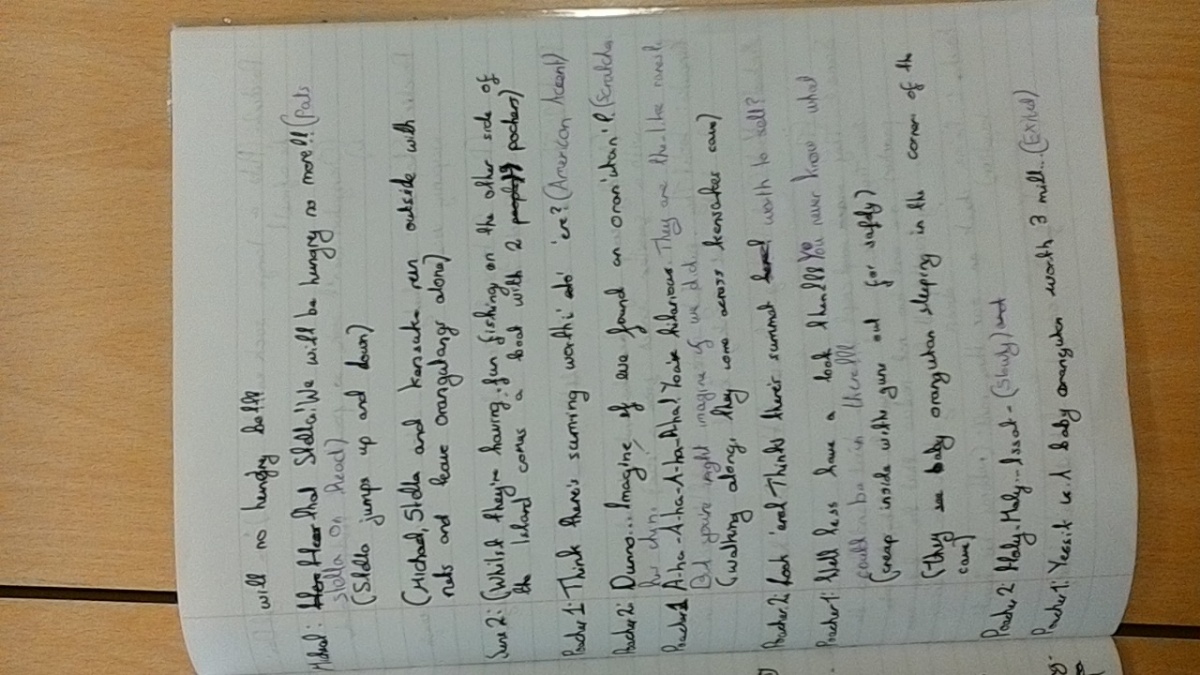 will no hungry be!!!
Micheal: Hear that Stella! We will be hungry no more!! (Pats
Stella on head)
(Stella jumps up and down)
(Michael, Stella and Kensuke run outside with
nets and leave orangutangs alone)
Scene 2: (Whilst they're having fun fishing on the other side of
the island comes a boat with 2 pochers)
Poacher 1: Think there's suming worth 'ere? (American Accent)
Poacher 2: Dunno... Imagine if we found an oran'utan'!! (Scratches
his chin)
Poacher 1 A-ha-A-ha-A-ha-Aha! You're hilarious. They are the-the
But you're inght imagine if we did...
(Walking along, they come across kensukes cave)
Poacher 2: Look 'ere! Thinks there's summat worth to sell?
Poacher 1: Well less have a look then!!! You never know what
could be in there!!!
(creap inside with guns out for safty)
(They see baby orangutan sleeping in the corner of the
cave)
Poacher 2: Holy-Moly... Issat -
Poacher 1: Yessit is A baby orangutan worth 3 mill... (Exited)